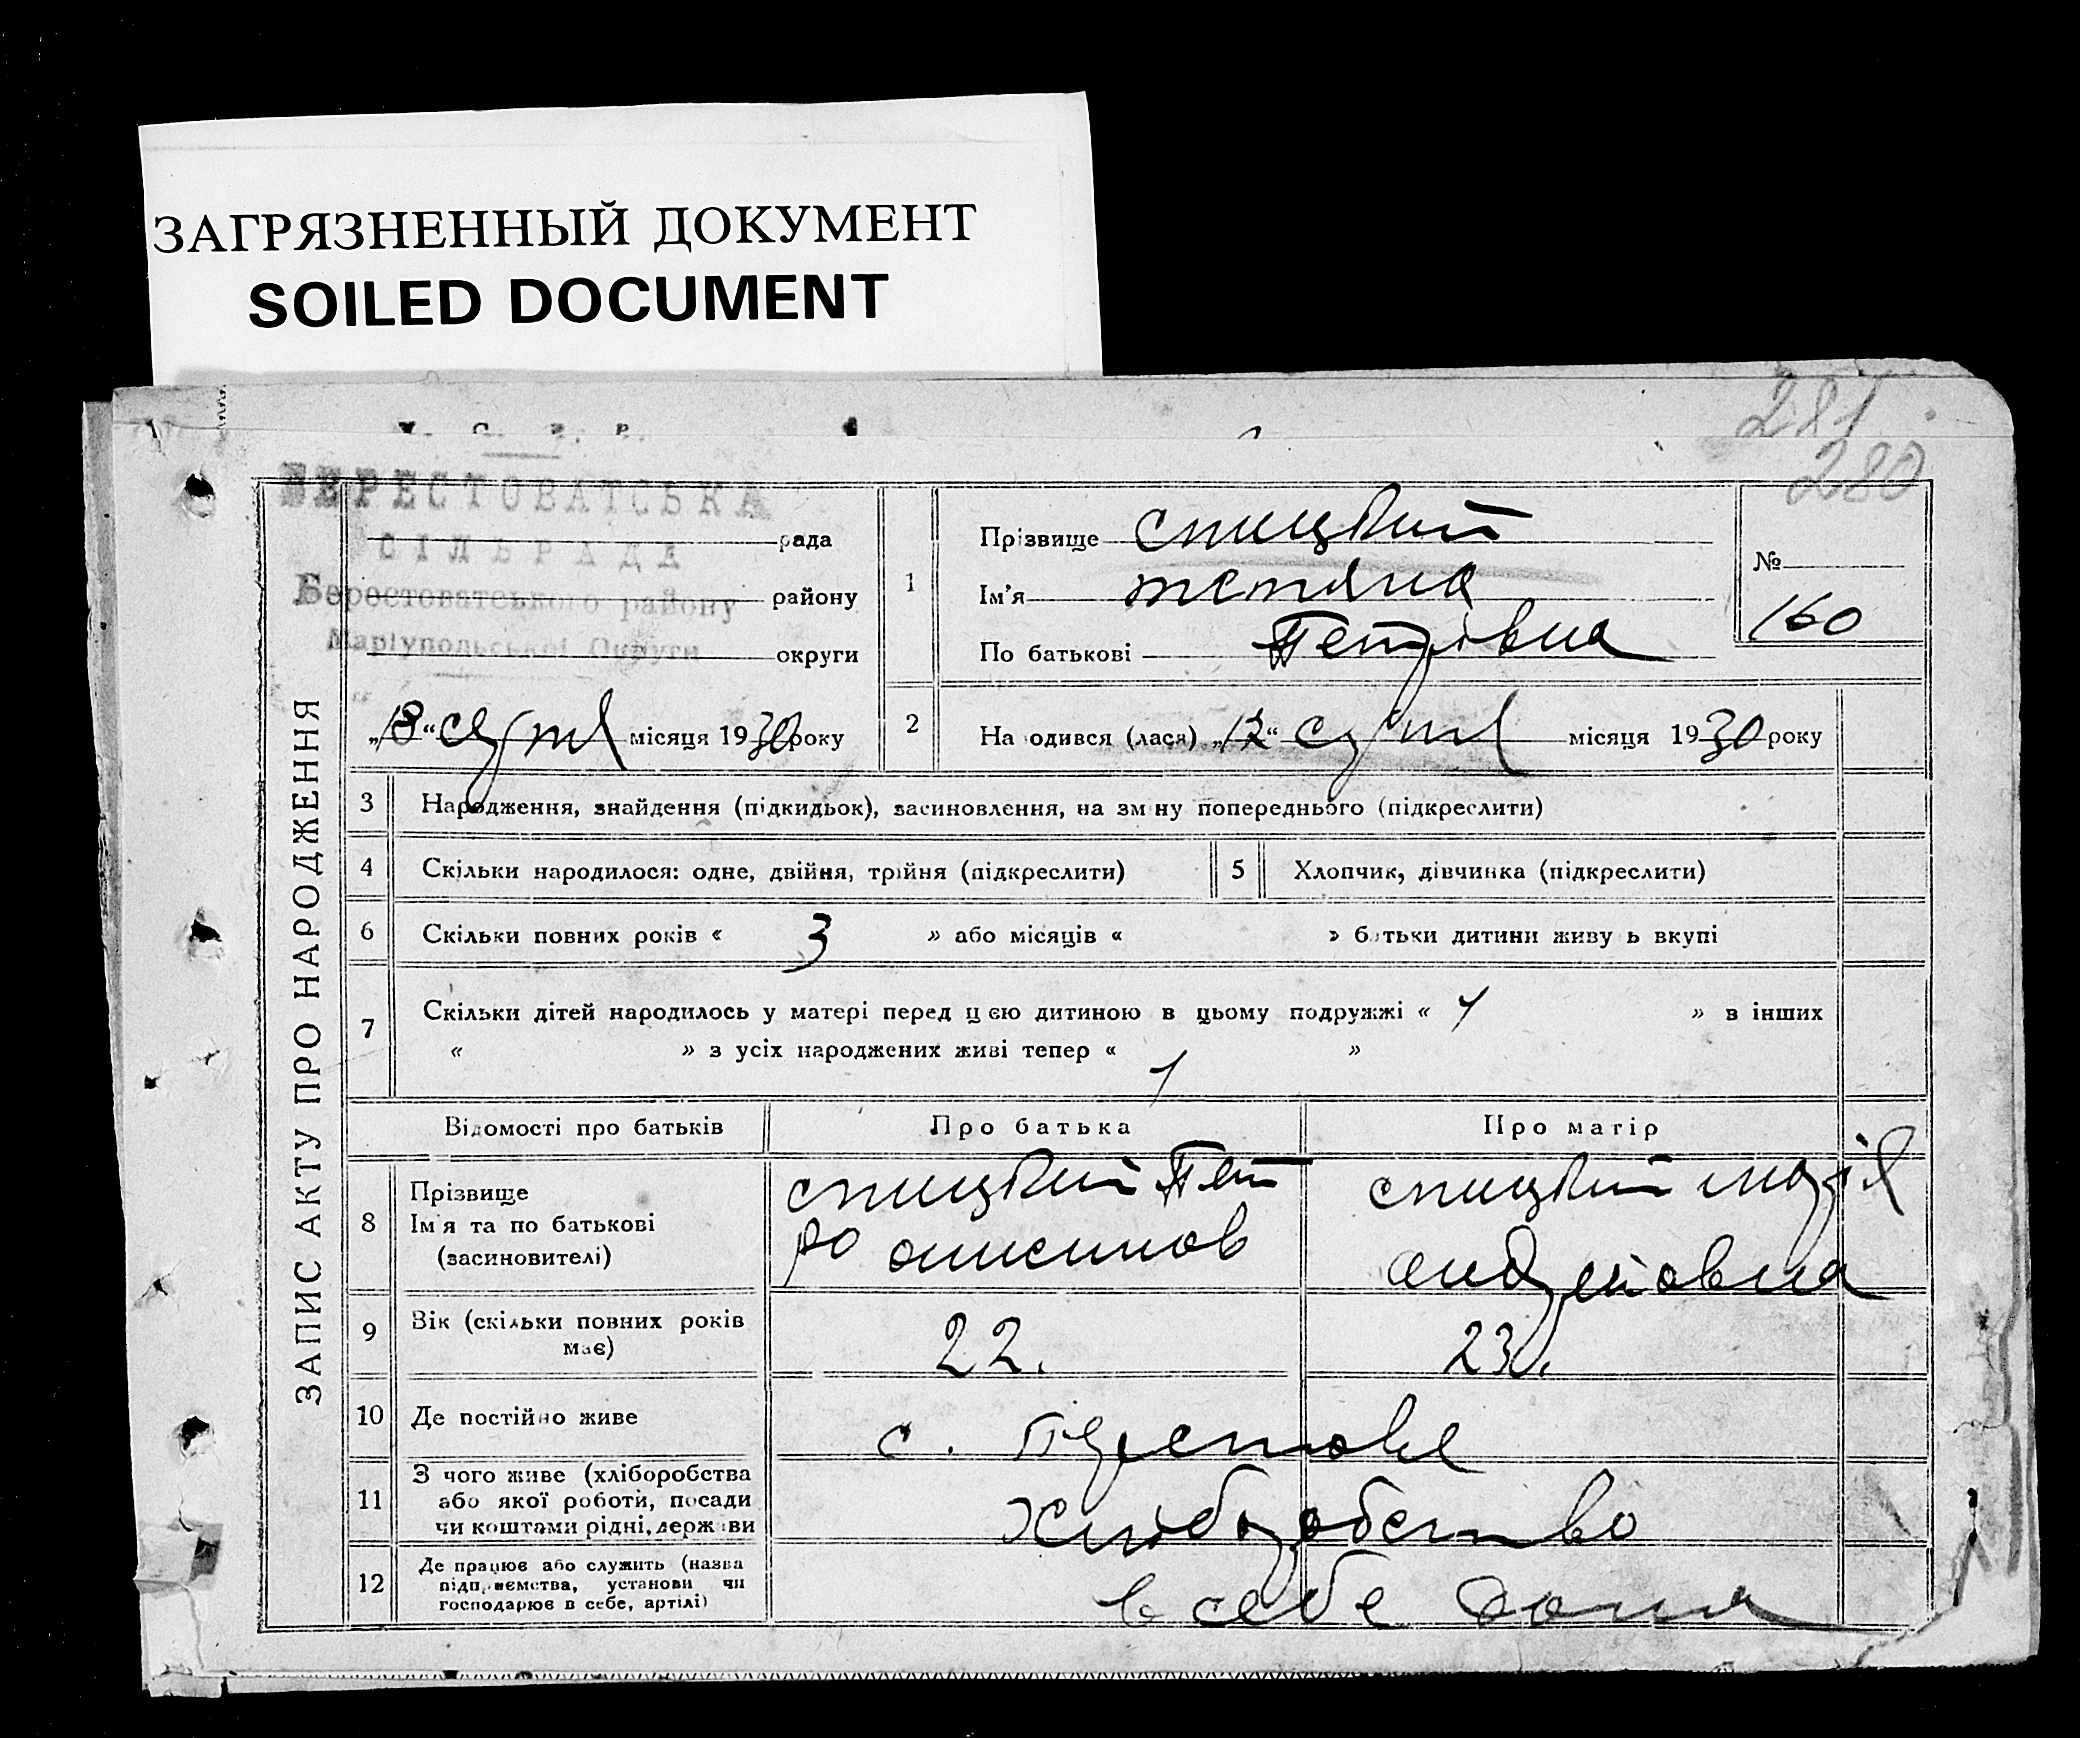 ЗАГРЯЗНЕННЫЙ ДОКУМЕНТ
SOILED DOCUMENT
281
280
БЕРЕСТОВАТСЬКА
СІЛЬРАДА
Берестоватського району
Маріупольської Округи
рада
району
округи
„18“ місяця 1930 року
ЗАПИС АКТУ ПРО НАРОДЖЕННЯ
1
Прізвище спицкий
Ім'я
По батькові Петрівна
№
160
2
На одився (лася) „12“ місяця 1930 року
3 Народження, знайдення (підкидьок), засиновлення, на зм ну попереднього (підкреслити)
4 Скільки народилося: одне, двійня, трійня (підкреслити)
5 Хлопчик, дівчинка (підкреслити)
6 Скільки повних років « 3 » або місяців « » батьки дитини живу ь вкупі
7 Скільки дітей народилось у матері перед цією дитиною в цьому подружжі « 1 » в інших
« » з усіх народжених живі тепер « 1 »
Відомості про батьків
Про батька
Про матір
8
Прізвище
Ім'я та по батькові
(засиновителі)
спицкий Пет
ро онисимов
спицкий марія
андріївна
9
Вік (скільки повних років
має)
22.
23
10 Де постійно живе
с.
11
З чого живе (хліборобства
або якої роботи, посади
чи коштами рідні, держави
хліборобство
12
Де працює або служить (назва
підприємства, установи чи
господарює в себе, артілі)
в себе дома